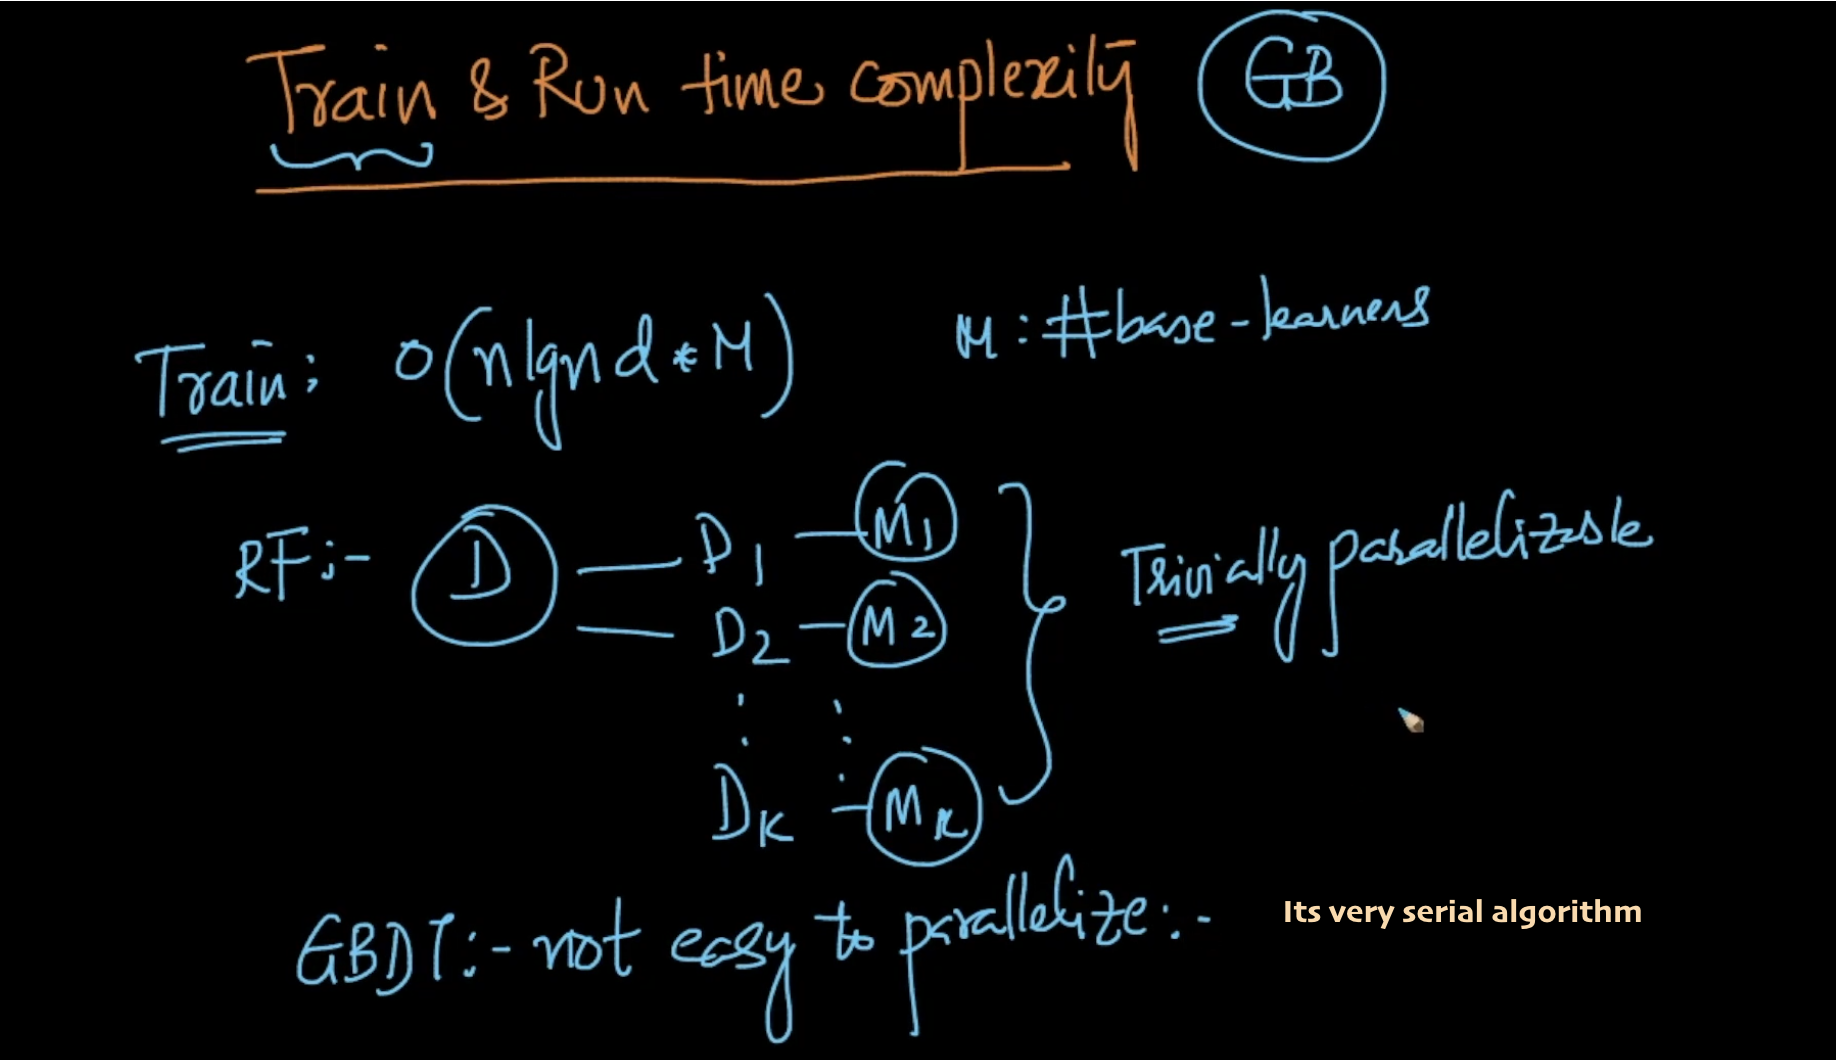 Train & Run time complexity GB
Train: O(n lgn d * M) M : #base-learners
RF:- D D1 M1
D2 M2
Trivially parallelizable
DK MK
GBDT:- not easy to parallelize:- Its very serial algorithm